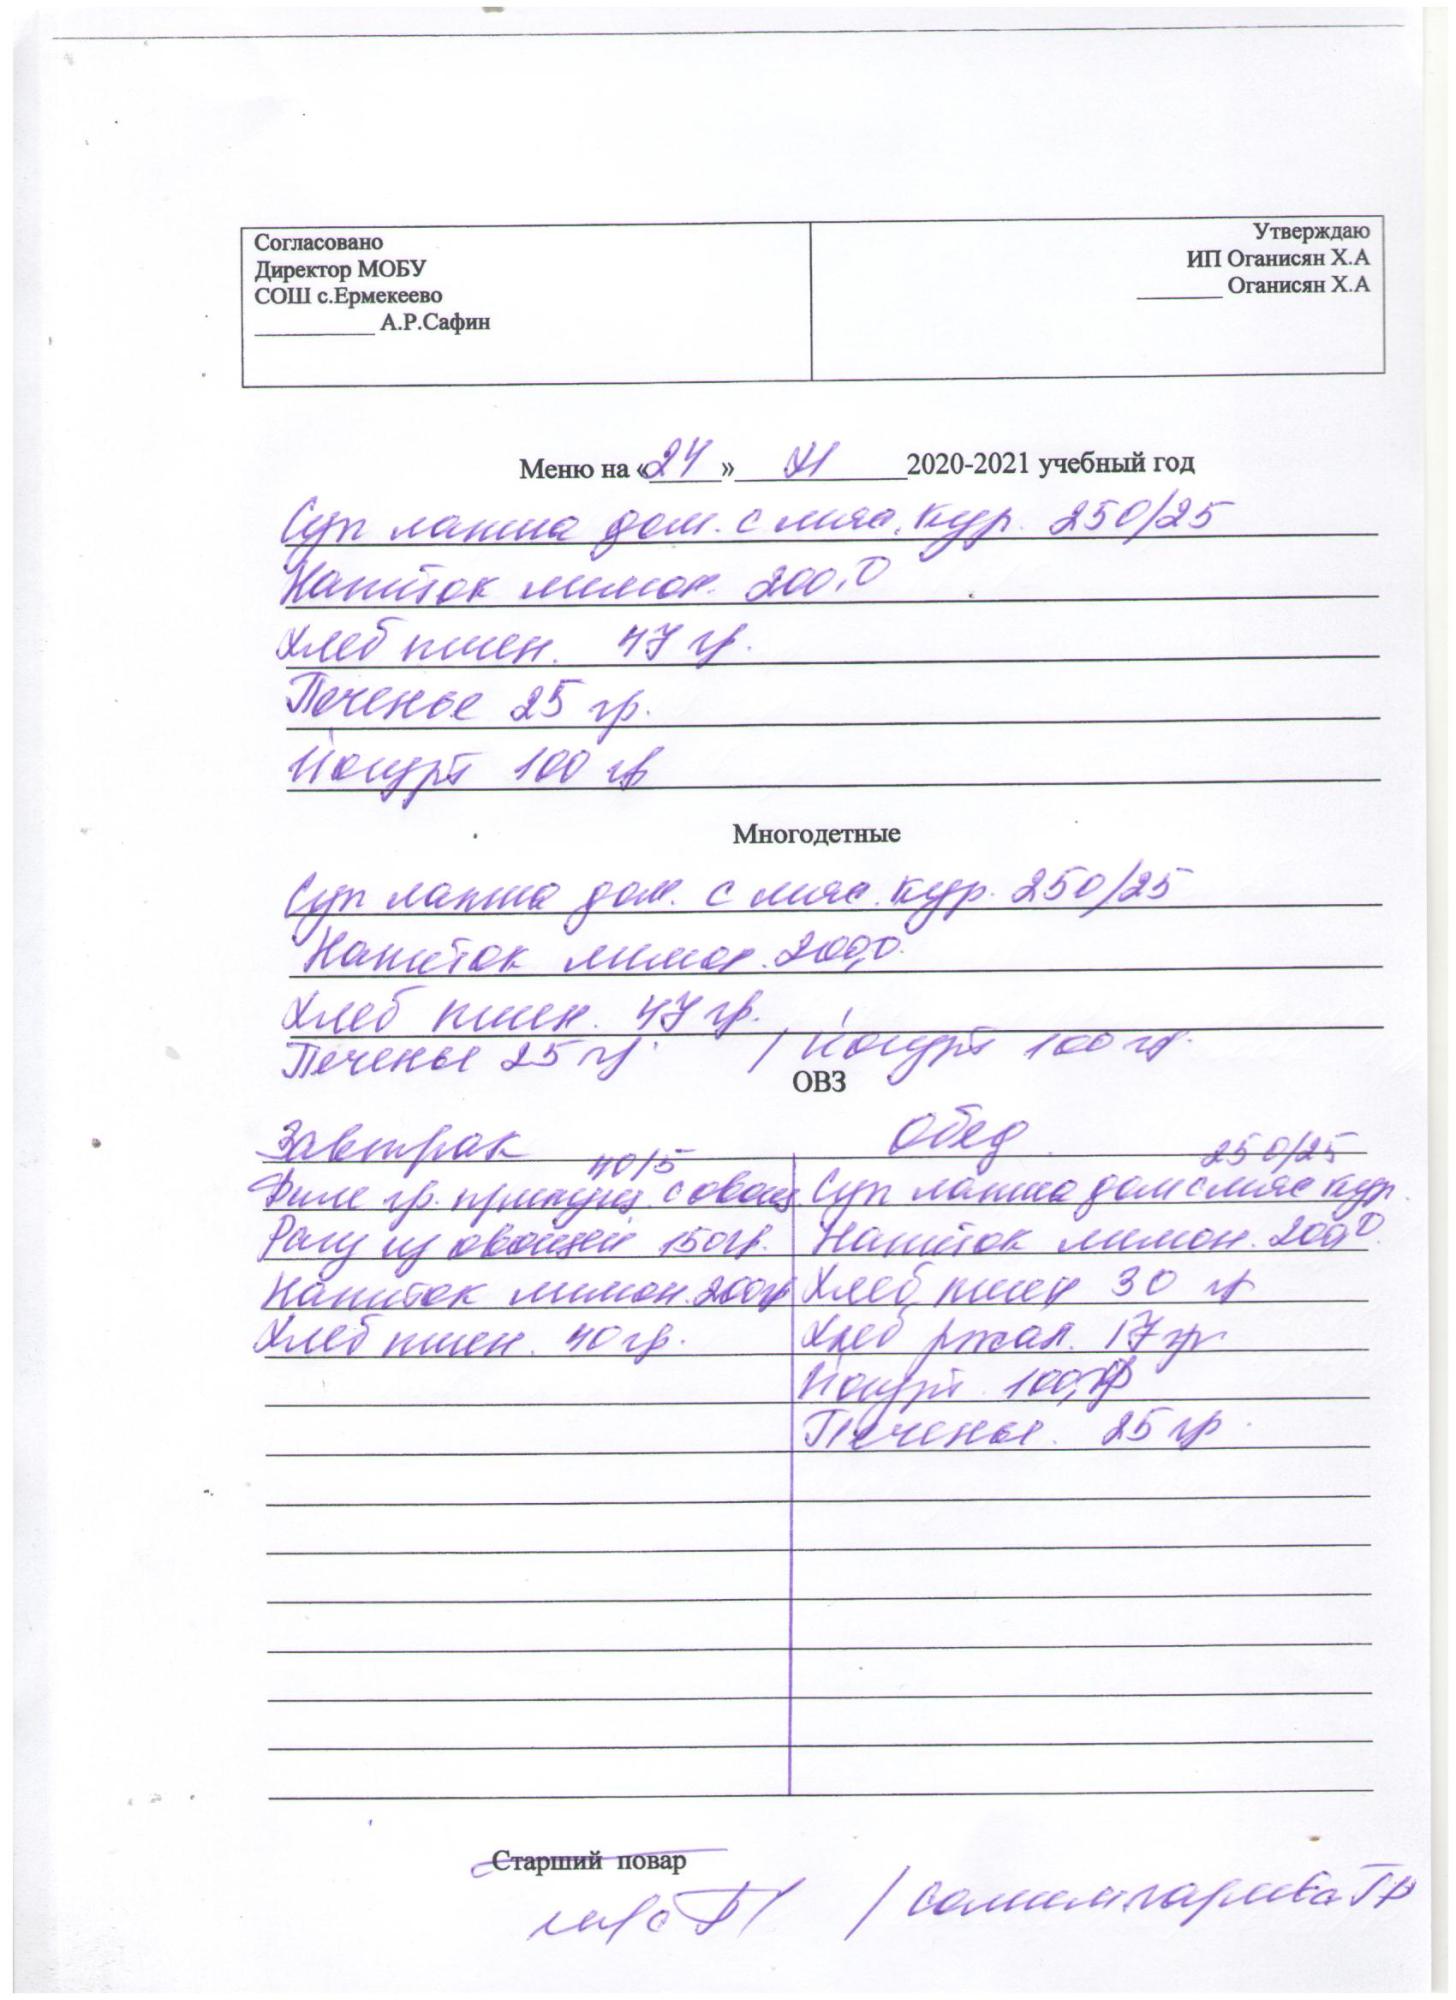 Согласовано
Директор МОБУ
СОШ с.Ермекеево
А.Р.Сафин
Утверждаю
ИП Оганисян Х.А
Оганисян Х.А
Меню на «24» XI 2020-2021 учебный год
Суп лапша дом. с мяс. кур. 250/25
Напиток лимон. 200,0
Хлеб пшен. 47 гр.
Печенье 25 гр.
Йогурт 100 гр
Многодетные
Суп лапша дом. с мяс. кур. 250/25
Напиток лимон. 200,0
Хлеб пшен. 47 гр.
Печенье 25 гр. / Йогурт 100 гр.
ОВЗ
Завтрак
40/5
Филе гр. припущ. с овощ.
Рагу из овощей 150 гр.
Напиток лимон. 200 гр
Хлеб пшен. 40 гр.
Обед
250/25
Суп лапша дом с мяс кур.
Напиток лимон. 200,0.
Хлеб пшен 30 гр
Хлеб ржан. 17 гр
Йогурт. 100
Печенье. 25 гр.
Старший повар